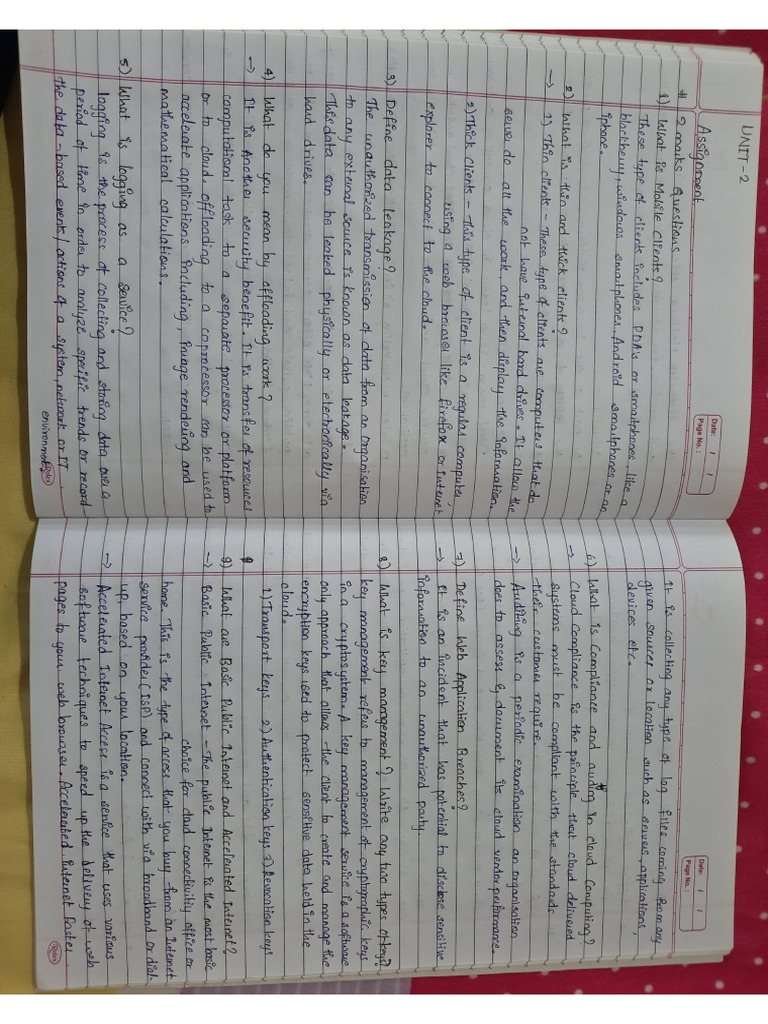 UNIT-2
Date: / /
Page No.:
Assignment
# 2 marks Questions
1) What is Mobile Clients?
These type of clients includes PDA's or smartphones, like a
blackberry, windows smartphones, Android smartphones or an
iphone.
2) What is thin and thick clients?
→ 1) Thin clients - These type of clients are computers that do
not have internal hard drives. It allow the
server do all the work, and then display the information.
2) Thick clients - This type of client is a regular computer,
using a web browser like firefox or Internet
explorer to connect to the cloud.
3) Define data leakage?
The unauthorized transmission of data from an organisation
to any external source is known as data leakage.
This data can be leaked physically or electronically via
hard drives.
4) What do you mean by offloading work?
→ It is Another security benefit. It is transfer of resources
computational task to a separate processor or platform
or to cloud. offloading to a coprocessor can be used to
accelerate applications including, Image rendering and
mathematical calculations.
5) What is logging as a service?
logging is the process of collecting and storing data over a
period of time in order to analyze specific trends or record
the data-based events/actions of a system, network or IT
environment.
Date: / /
Page No.:
It is collecting any type of log files coming from any
given source or location such as servers, applications,
devices etc.
6) What is Compliance and auditing in cloud Computing?
→ Cloud Compliance is the principle that cloud delivered
systems must be compliant with the standards
their customer require.
→ Auditing is a periodic examination an organisation
does to assess & document its cloud vendor performance.
7) Define Web Application Breaches?
→ It is an incident that has potential to disclose sensitive
information to an unauthorized party.
8) What is key management? Write any two types of keys?
key management refers to management of cryptographic keys
in a cryptosystem. A key management service is a software
only approach that allows the client to create and manage the
encryption keys used to protect sensitive data held in the
cloud.
1) Transport keys 2) Authentication keys 3) Revocation keys
9) What are Basic Public Internet and Accelerated Internet?
→ Basic Public - Internet - The public Internet is the most basic
choice for cloud connectivitiy office or
home. This is the type of access that you buy from an Internet
service provider (ISP) and connect with via broadband or dial-
up, based on your location.
→ Accelerated Internet Access is a service that uses various
software techniques to speed up the delivery of web
pages to your web browser. Accelerated internet faster